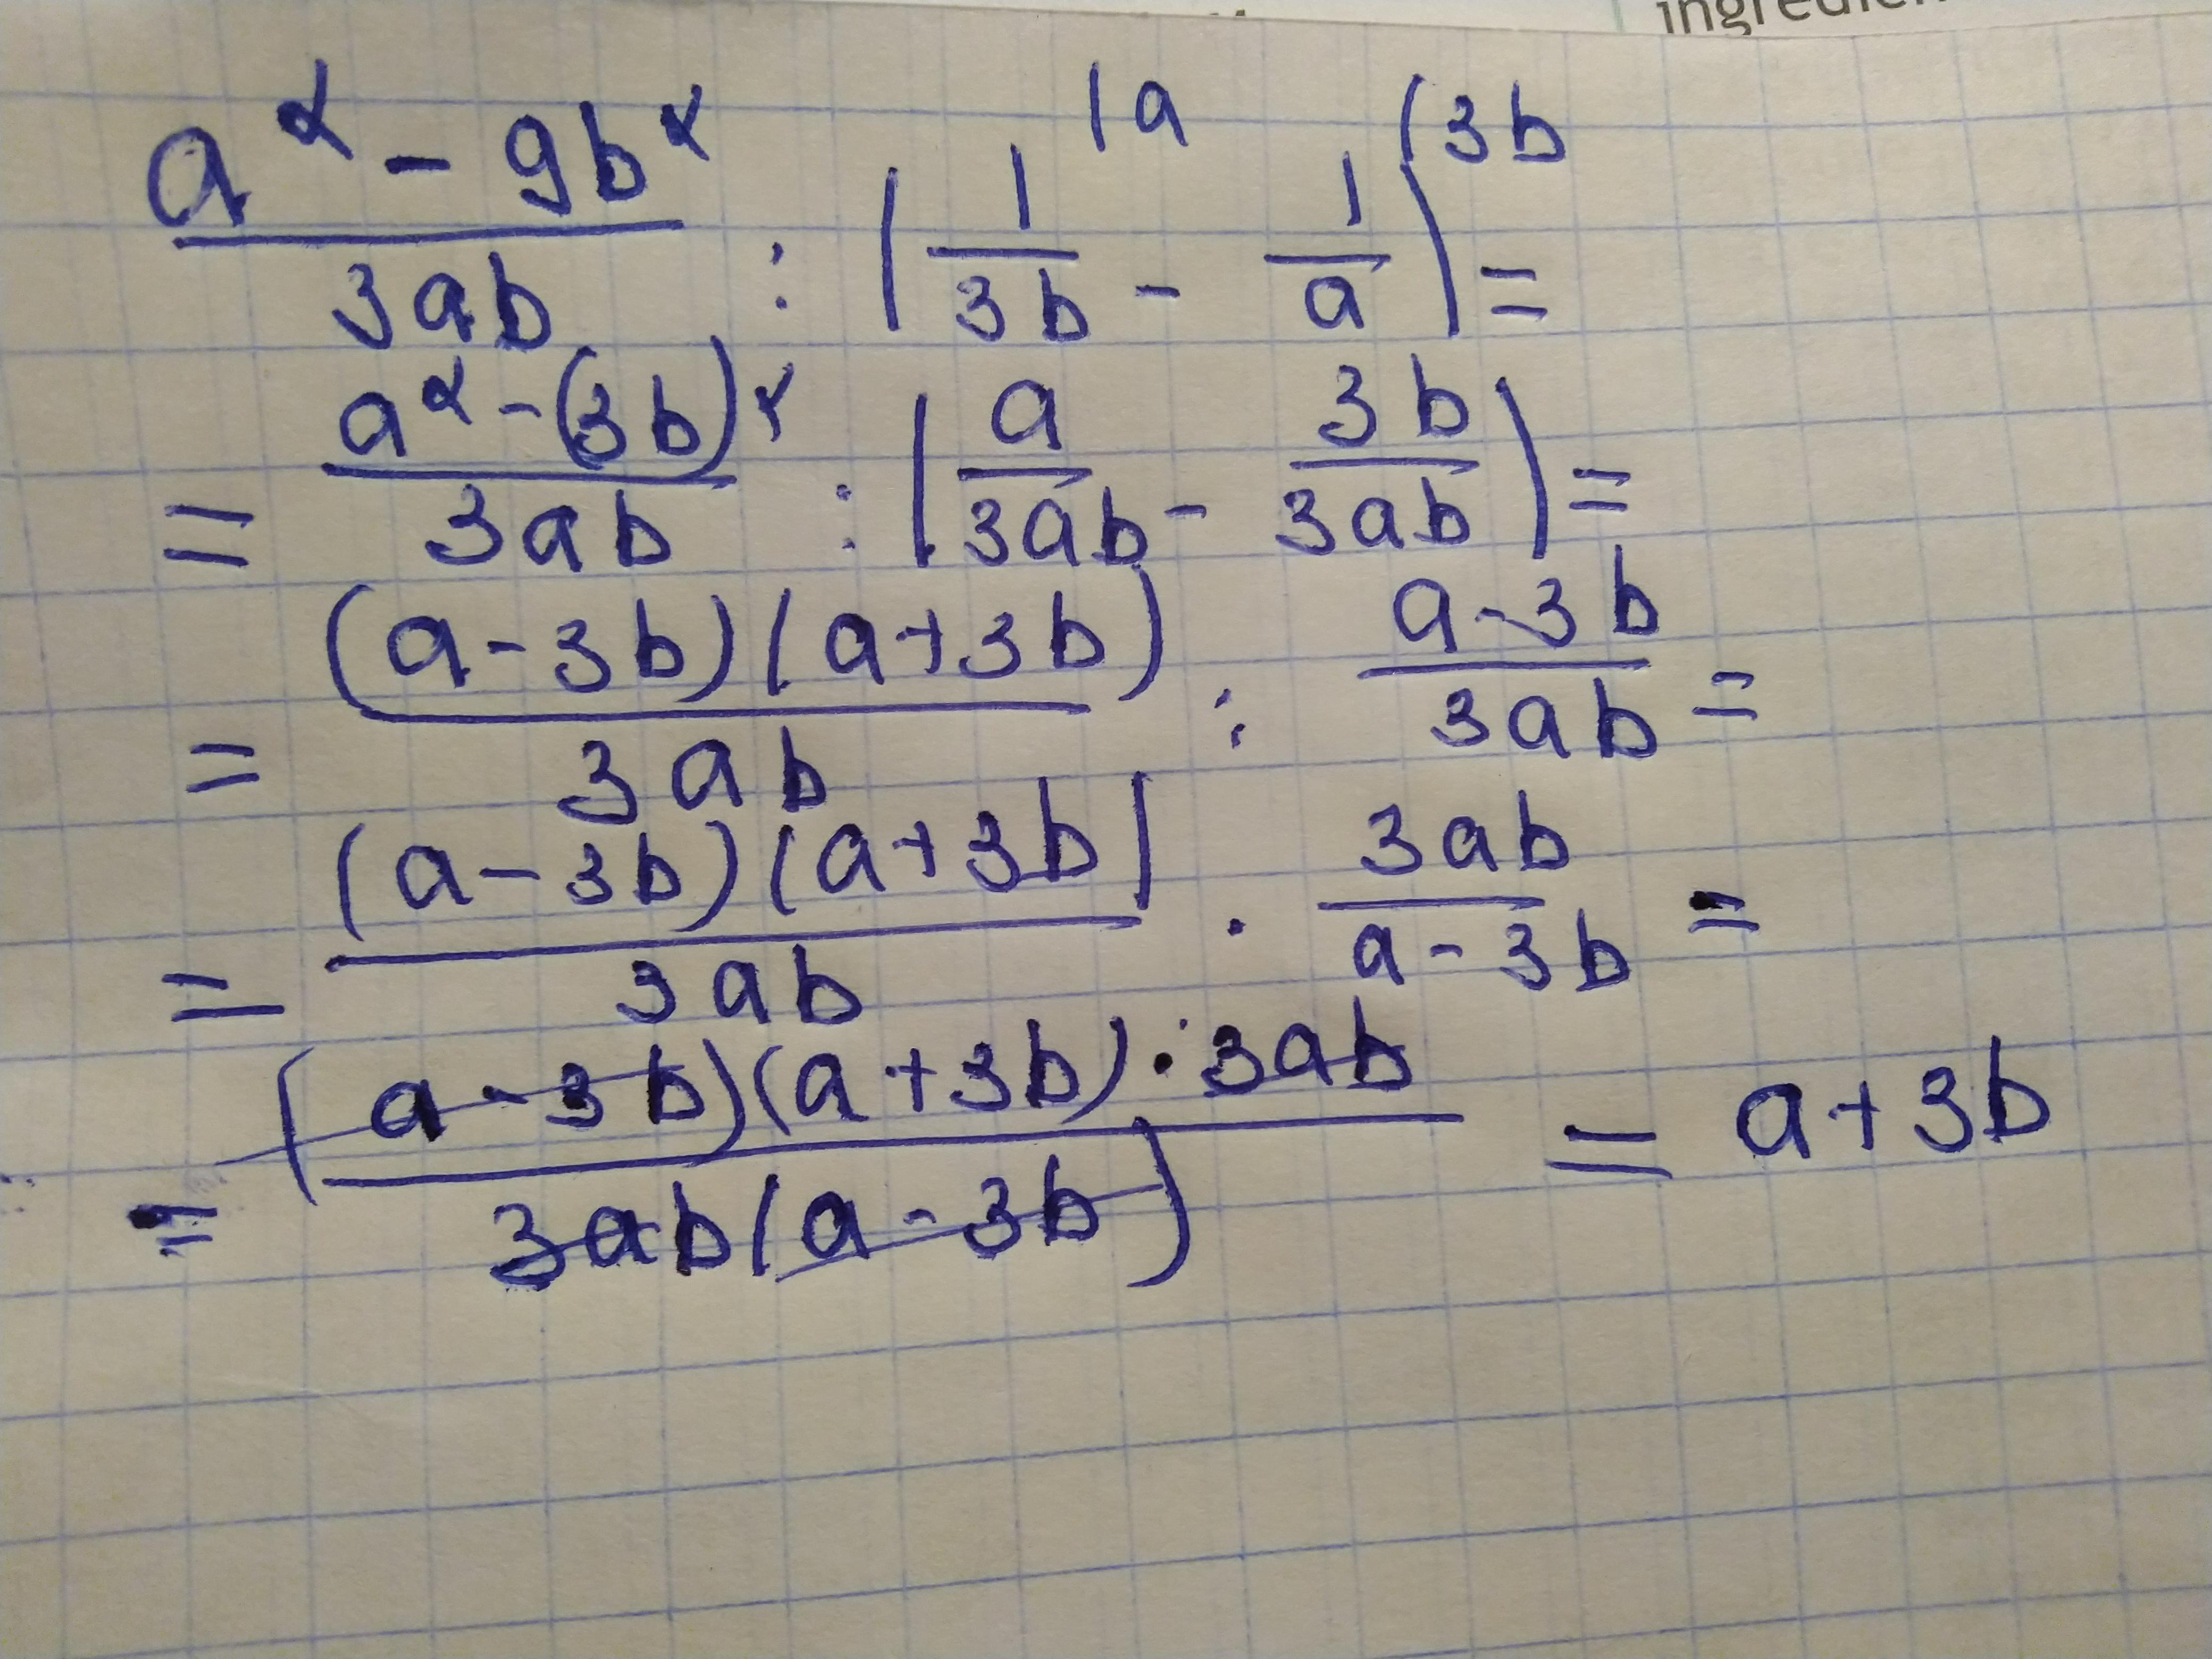 ingredien
(a² - 9b²)/(3ab) : (1/(3b) |a - 1/a |3b) =
= (a² - (3b)²)/(3ab) : (a/(3ab) - 3b/(3ab)) =
= ((a - 3b)(a + 3b))/(3ab) : (a - 3b)/(3ab) =
= ((a - 3b)(a + 3b))/(3ab) · (3ab)/(a - 3b) =
= ((a - 3b)(a + 3b) · 3ab)/(3ab(a - 3b)) = a + 3b